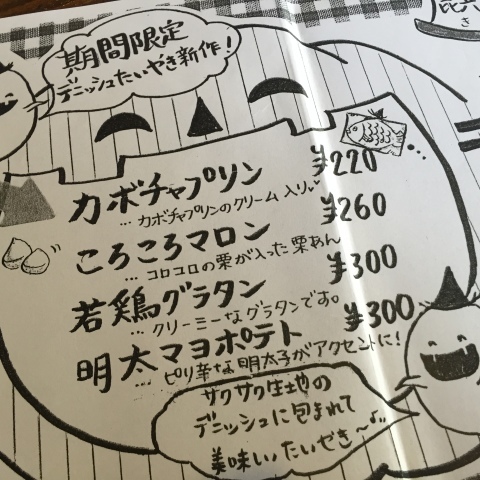 期間限定
デニッシュたいやき新作！
カボチャプリン ¥220
…カボチャプリンのクリーム入り♥
ころころマロン ¥260
…コロコロの栗が入った栗あん
若鶏グラタン ¥300
…クリーミーなグラタンです。
明太マヨポテト ¥300
…ピリ辛な明太子がアクセントに！
サクサク生地の
デニッシュに包まれて
美味しいたいやき～♪